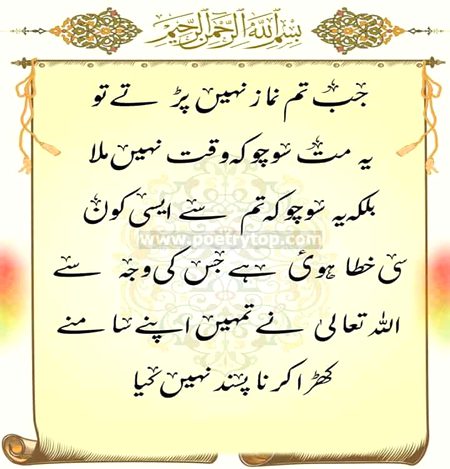 بسم الله الرحمن الرحيم
جب تم نماز نہیں پڑتے تو
یہ مت سوچو کہ وقت نہیں ملا
بلکہ یہ سوچو کہ تم سے ایسی کون
www.poetrytop.com
سی خطا ہوئی ہے جس کی وجہ سے
اللہ تعالیٰ نے تمہیں اپنے سامنے
کھڑا کرنا پسند نہیں کیا